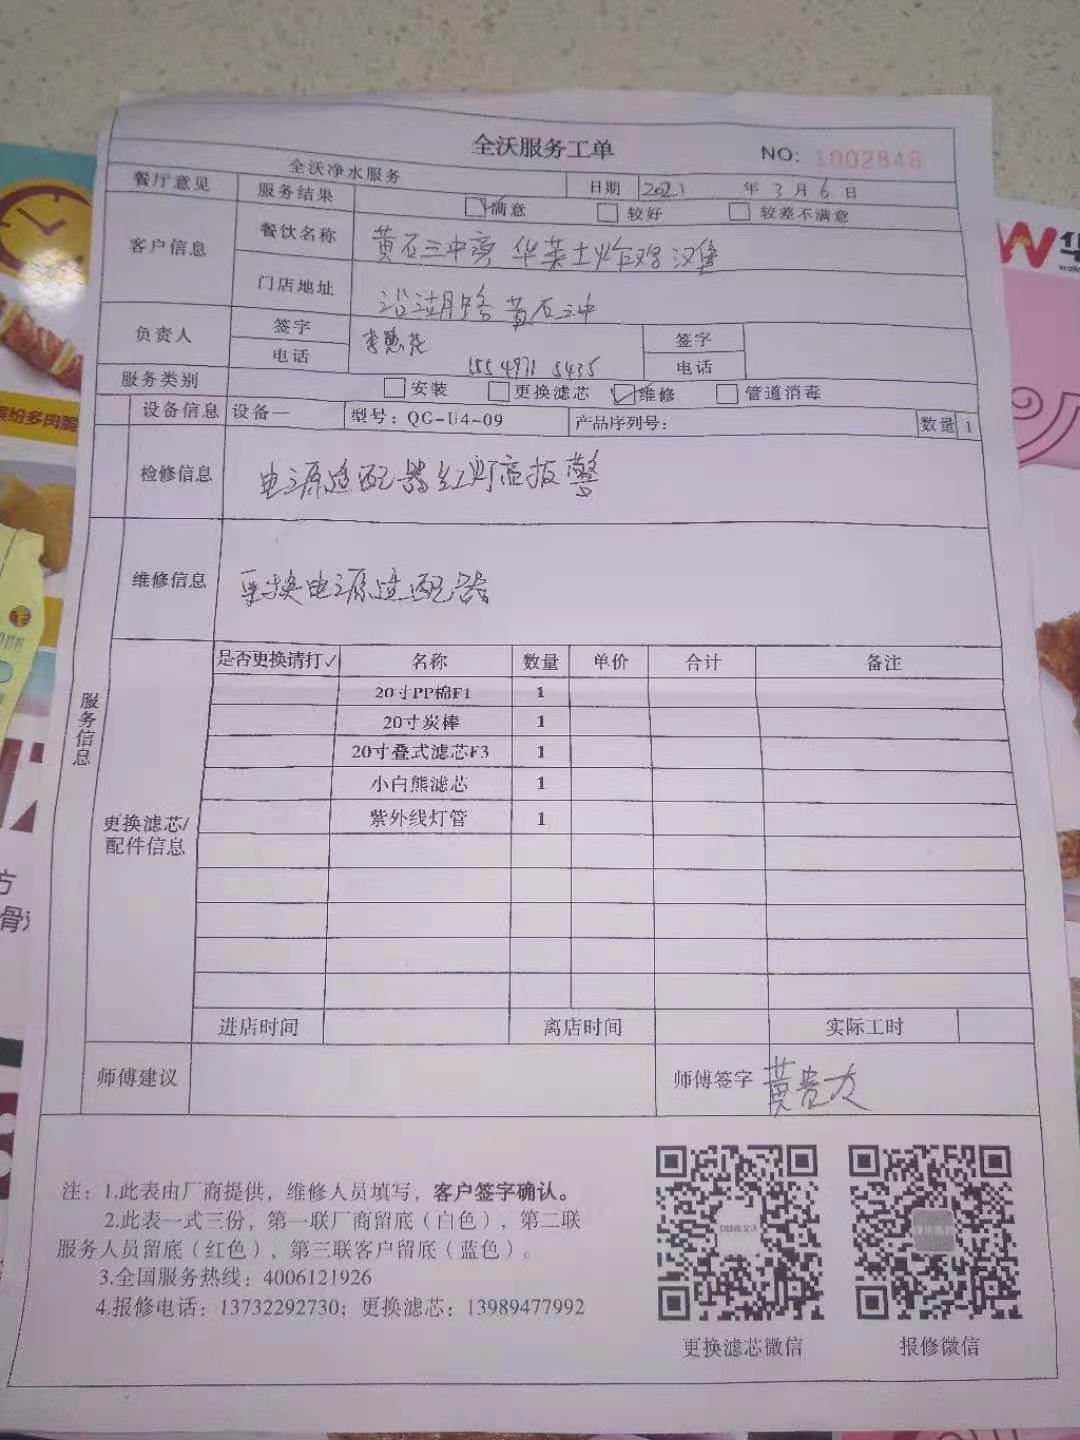 全沃服务工单
NO: 1002848
全沃净水服务 日期 2021 年 3 月 6 日
餐厅意见 服务结果 满意 较好 较差不满意
客户信息 餐饮名称 黄石三中旁 华莱士炸鸡汉堡
门店地址 沿湖路 黄石三中
负责人 签字 签字
电话 155 4971 5435 电话
服务类别 安装 更换滤芯 维修 管道消毒
设备信息 设备一 型号：QG-U4-09 产品序列号： 数量 1
检修信息 电源适配器红灯亮报警
维修信息 更换电源适配器
服务信息
是否更换请打✓ 名称 数量 单价 合计 备注
20寸PP棉F1 1
20寸炭棒 1
20寸叠式滤芯F3 1
小白熊滤芯 1
紫外线灯管 1
更换滤芯/
配件信息
进店时间 离店时间 实际工时
师傅建议 师傅签字 黄贵友
注：1.此表由厂商提供，维修人员填写，客户签字确认。
2.此表一式三份，第一联厂商留底（白色），第二联
服务人员留底（红色），第三联客户留底（蓝色）。
3.全国服务热线：4006121926
4.报修电话：13732292730；更换滤芯：13989477992
更换滤芯微信 报修微信
缤纷多肉脆
W华